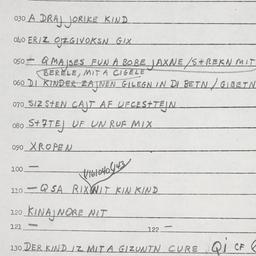 030 A DRAJ JORIKE KIND
040 ERIZ OJZGIVOKSN GIX
050 — Q MAJSES FUN A BOBE JAXNE / S+REKN MIT
BERELE, MIT A CIGELE
060 DI KINDER ZAJNEN GILEGN IN DI BETN / GIBETN
070 SIZSTEN CAJT AF UFCESTTEJN
080 S+7TEJ UF UN RUF MIX
090 XROPEN
100 —
110 — Q SA RIX NIT KIN KIND
120 KINAJNORE NIT
121 —
122 —
130 DER KIND IZ MIT A GIZUNTN CURE Qi CF